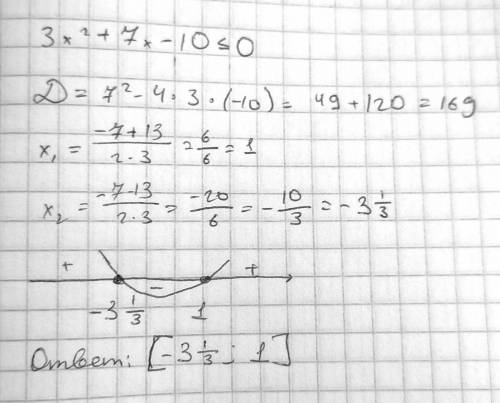 3x² + 7x - 10 ≤ 0
D = 7² - 4 · 3 · (-10) = 49 + 120 = 169
x₁ = (-7 + 13)/(2 · 3) = 6/6 = 1
x₂ = (-7 - 13)/(2 · 3) = -20/6 = -10/3 = -3 1/3
+ - +
-3 1/3 1
Ответ: [-3 1/3 ; 1]